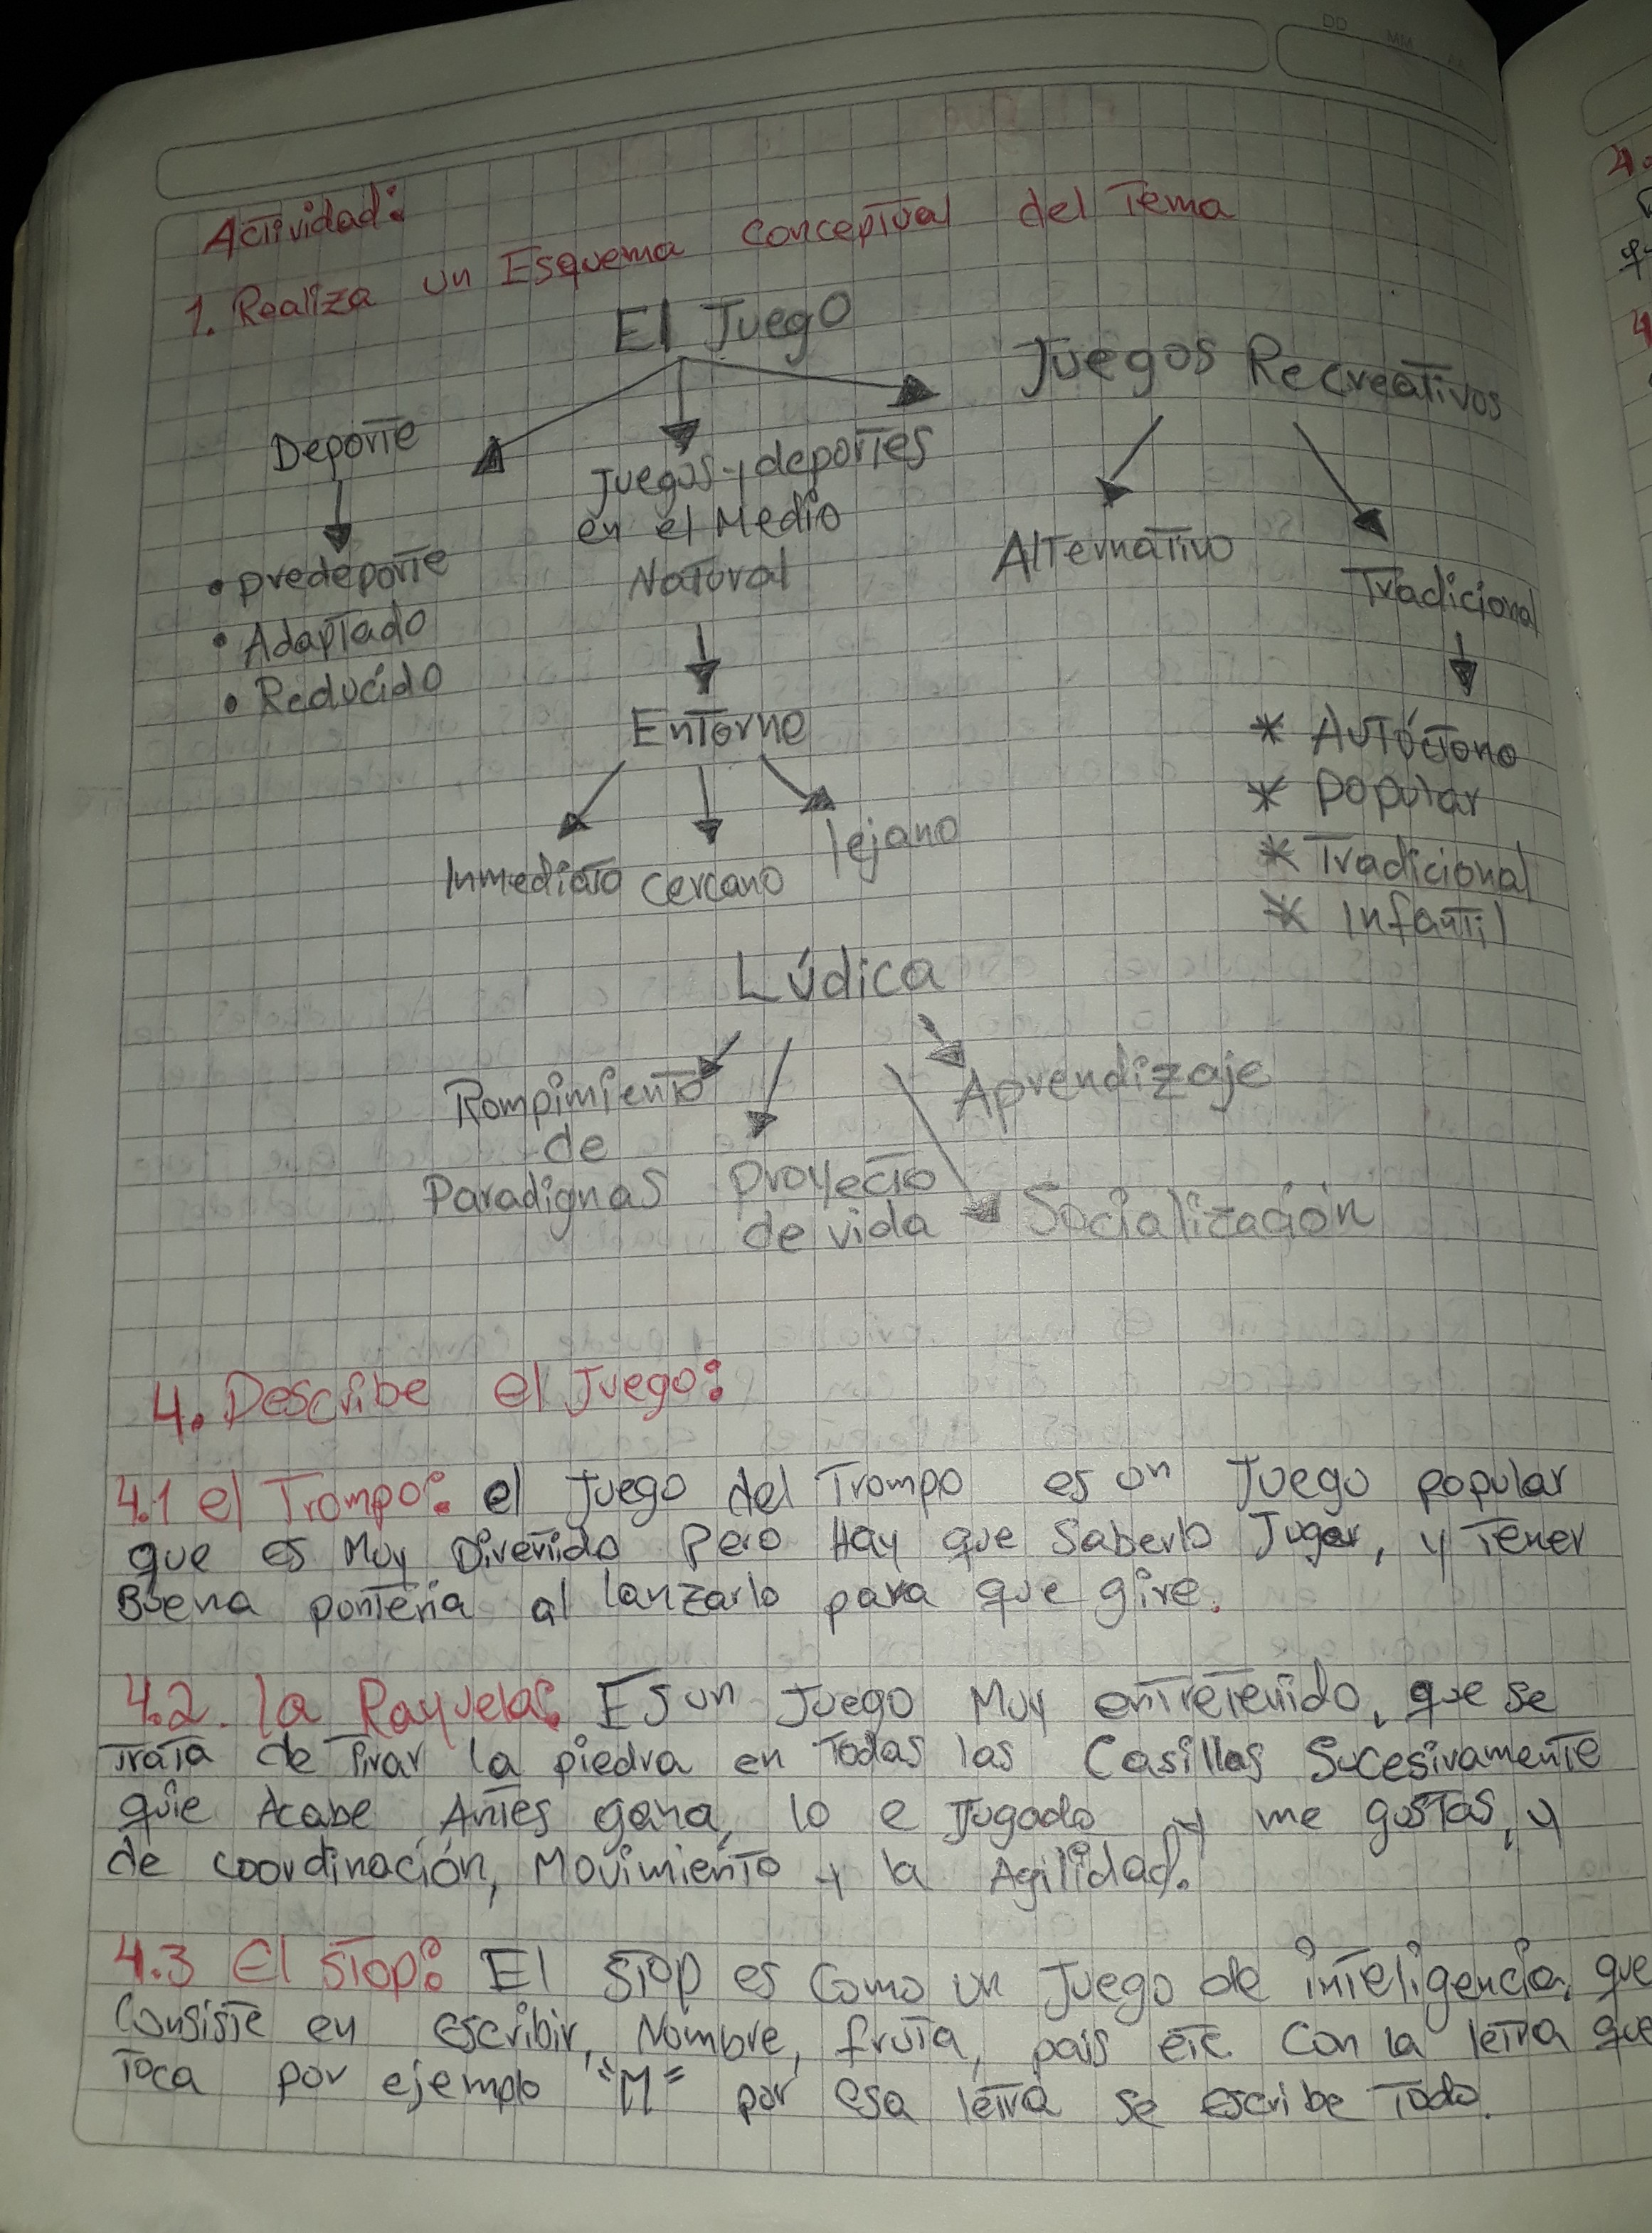 Actividad:
1. Realiza un Esquema conceptual del Tema
El Juego
Juegos Recreativos
Deporte
Juegos y deportes
en el Medio
Natural
Alternativo
Tradicional
• predeporte
• Adaptado
• Reducido
Entorno
* Autóctono
* popular
* Tradicional
* Infantil
Inmediato cercano lejano
Lúdica
Rompimiento
de
Paradigmas
proyecto
de vida
Aprendizaje
Socialización
4. Describe el Juego:
4.1 el Trompo: el Juego del Trompo es un Juego popular
que es Muy Divertido Pero Hay que Saberlo Jugar, y Tener
Buena puntería al lanzarlo para que gire.
4.2. la Rayuela: Es un Juego Muy entretenido, que se
trata de Tirar la piedra en Todas las Casillas Sucesivamente
quie Acabe Antes gana, lo e Jugado y me gustas, y
de coordinación, Movimiento y la Agilidad.
4.3 El Stop: El Stop es Como un Juego de inteligencia, que
Consiste en escribir, Nombre, fruta, pais etc Con la letra que
Toca por ejemplo "M" por esa letra se escribe Todo.